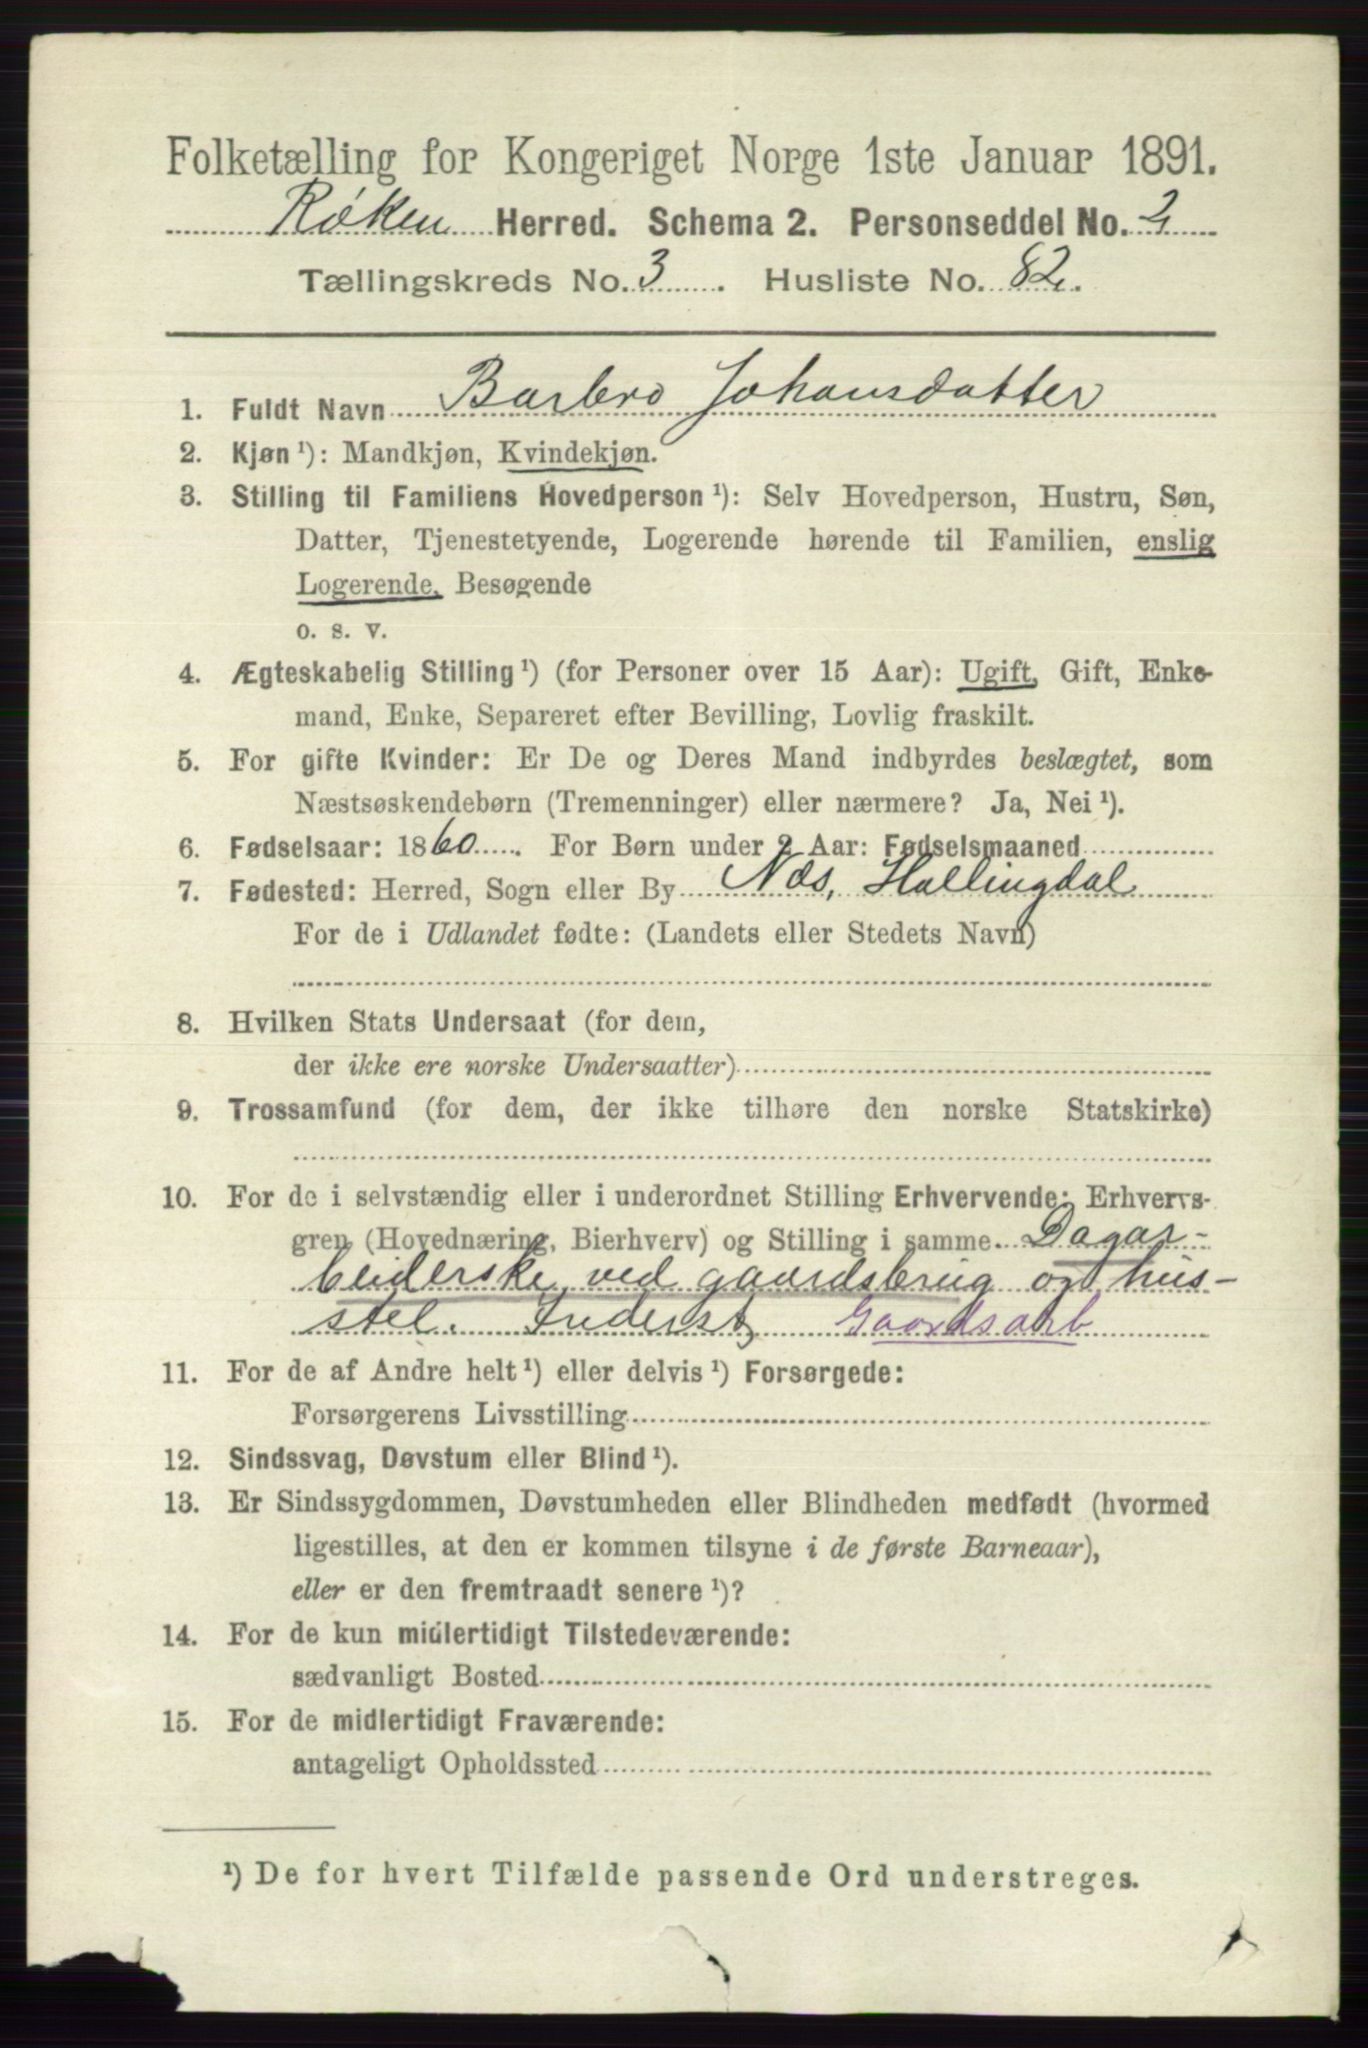 Folketælling for Kongeriget Norge 1ste Januar 1891.
Røken Herred. Schema 2. Personseddel No. 2
Tællingskreds No. 3. Husliste No. 82.
1. Fuldt Navn Barbro Johansdatter
2. Kjøn¹): Mandkjøn, Kvindekjøn.
3. Stilling til Familiens Hovedperson¹): Selv Hovedperson, Hustru, Søn,
Datter, Tjenestetyende, Logerende hørende til Familien, enslig
Logerende, Besøgende
o. s. v.
4. Ægteskabelig Stilling¹) (for Personer over 15 Aar): Ugift, Gift, Enke-
mand, Enke, Separeret efter Bevilling, Lovlig fraskilt.
5. For gifte Kvinder: Er De og Deres Mand indbyrdes beslægtet, som
Næstsøskendebørn (Tremenninger) eller nærmere? Ja, Nei¹).
6. Fødselsaar: 1860. For Børn under 2 Aar: Fødselsmaaned
7. Fødested: Herred, Sogn eller By Næs, Hallingdal
For de i Udlandet fødte: (Landets eller Stedets Navn)
8. Hvilken Stats Undersaat (for dem,
der ikke ere norske Undersaatter)
9. Trossamfund (for dem, der ikke tilhøre den norske Statskirke)
10. For de i selvstændig eller i underordnet Stilling Erhvervende: Erhvervs-
gren (Hovednæring, Bierhverv) og Stilling i samme. Dagar-
beiderske ved gaardsbrug og hus-
stel. Inderst, Gaardsarb
11. For de af Andre helt¹) eller delvis¹) Forsørgede:
Forsørgerens Livsstilling
12. Sindssvag, Døvstum eller Blind¹).
13. Er Sindssygdommen, Døvstumheden eller Blindheden medfødt (hvormed
ligestilles, at den er kommen tilsyne i de første Barneaar),
eller er den fremtraadt senere¹)?
14. For de kun midlertidigt Tilstedeværende:
sædvanligt Bosted
15. For de midlertidigt Fraværende:
antageligt Opholdssted
¹) De for hvert Tilfælde passende Ord understreges.